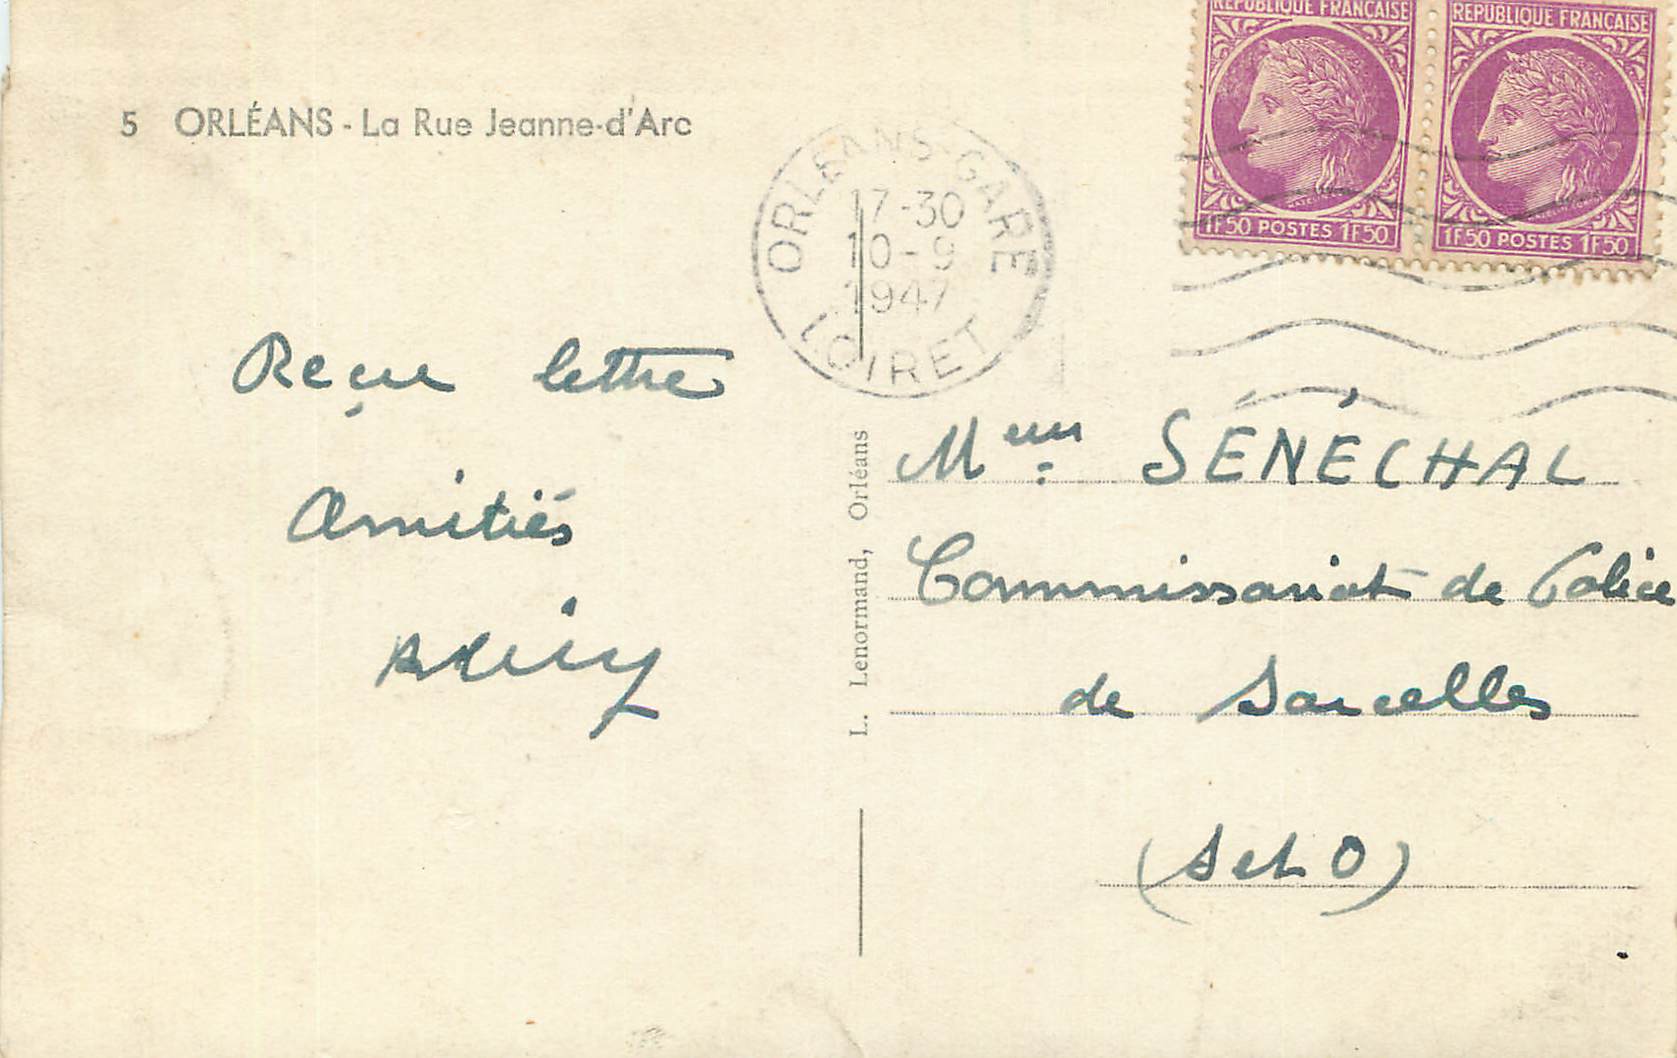 5 ORLÉANS - La Rue Jeanne-d'Arc
RÉPUBLIQUE FRANÇAISE
1F50 POSTES 1F50
RÉPUBLIQUE FRANÇAISE
1F50 POSTES 1F50
ORLEANS-GARE
17-30
10-9
1947
LOIRET
Reçu lettre
Amitiés
L. Lenormand, Orléans
SÉNÉCHAL
Commissariat de Police
de Sarcelles
(S et O)